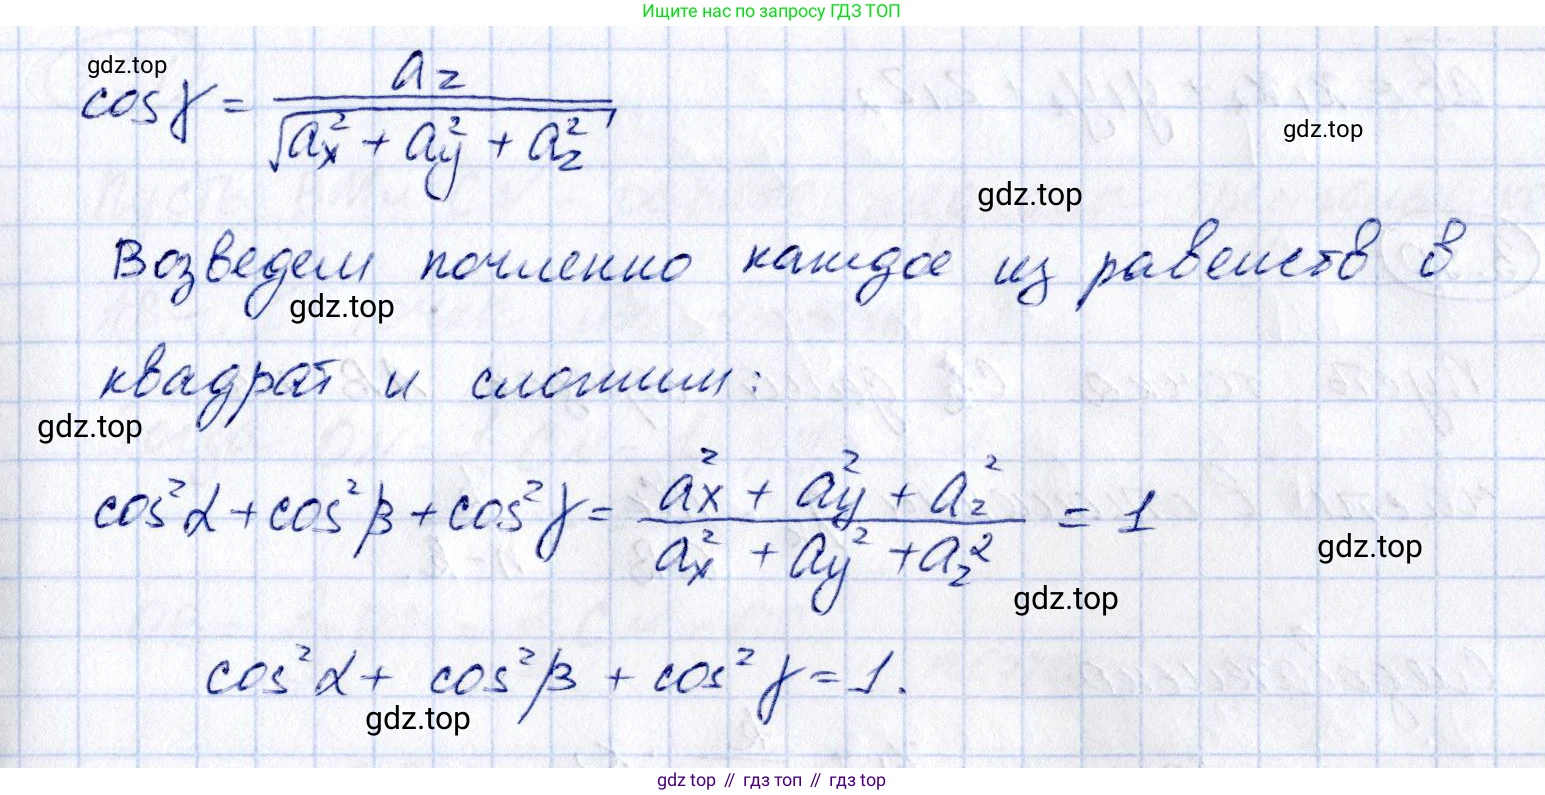 Ищите нас по запросу ГДЗ ТОП
gdz.top
cos γ = a_z / √(a_x² + a_y² + a_z²)
gdz.top
gdz.top
Возведем почленно каждое из равенств в
gdz.top
квадрат и сложим:
gdz.top
cos²α + cos²β + cos²γ = (a_x² + a_y² + a_z²) / (a_x² + a_y² + a_z²) = 1
gdz.top
gdz.top
cos²α + cos²β + cos²γ = 1.
gdz.top
gdz top // гдз топ // гдз top